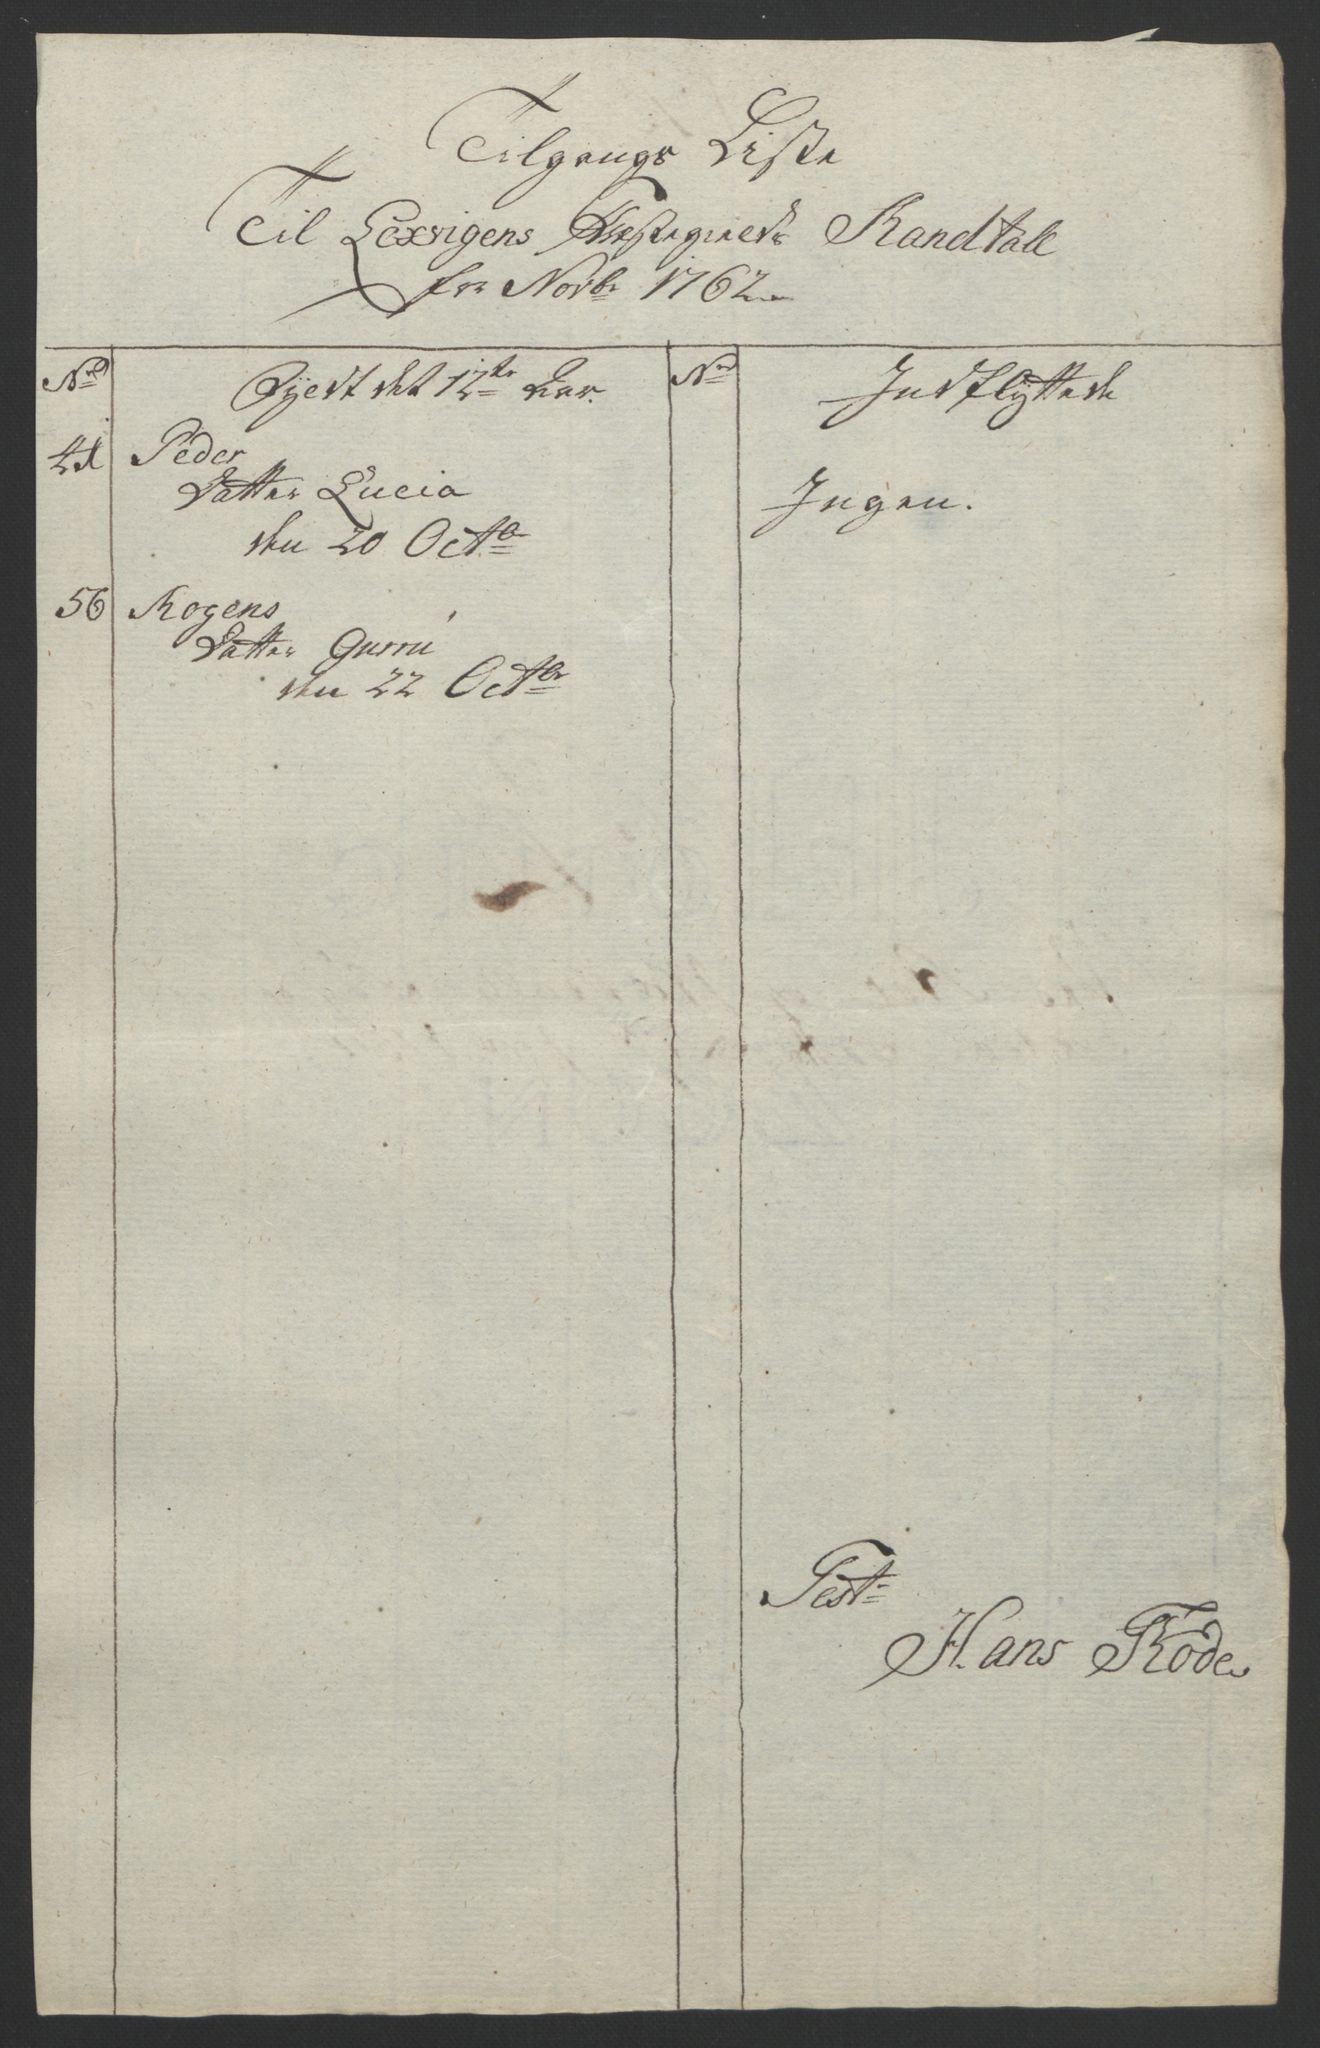 Tilgangs Liste
Til Lexvigens Præstegields Mandtall
for Novbr 1762
No
Fyldt det 12te Aar.
No
Indflyttede
41
Peder
Datter Lucia
den 20 Octbr
Ingen.
56
Mogens
Datter Gurru
den 22 Octbr
Test:
Hans Rode